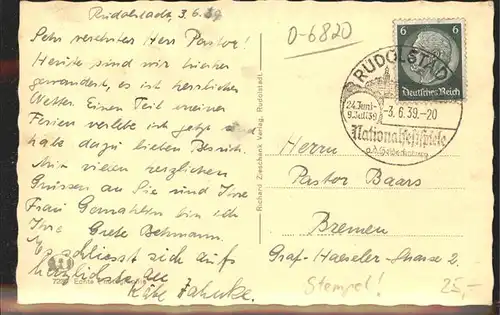 Rudolstadt 3.6.39
Sehr verehrter Herr Pastor!
Heute sind wir hierher
gewandert, es ist herrliches
Wetter. Einen Teil meiner
Ferien verlebe ich jetzt und
habe dazu lieben Besuch.
Mit vielen herzlichen
Grüssen an Sie und Ihre
Frau Gemahlin bin ich
Ihre Grete Behmann.
Es schliesst sich aufs
herzlichste an
Käte Jahncke.
Echte
Richard Zieschank Verlag, Rudolstadt.
0-6820
6 6
Deutsches Reich
RUDOLSTADT
24.Juni-
9.Juli39
-3.6.39.-20
Nationalfestspiele
a.d. Heidecksburg
Herrn
Pastor Baars
Bremen
Graf-Haeseler-Strasse 2.
Stempel!
25,-